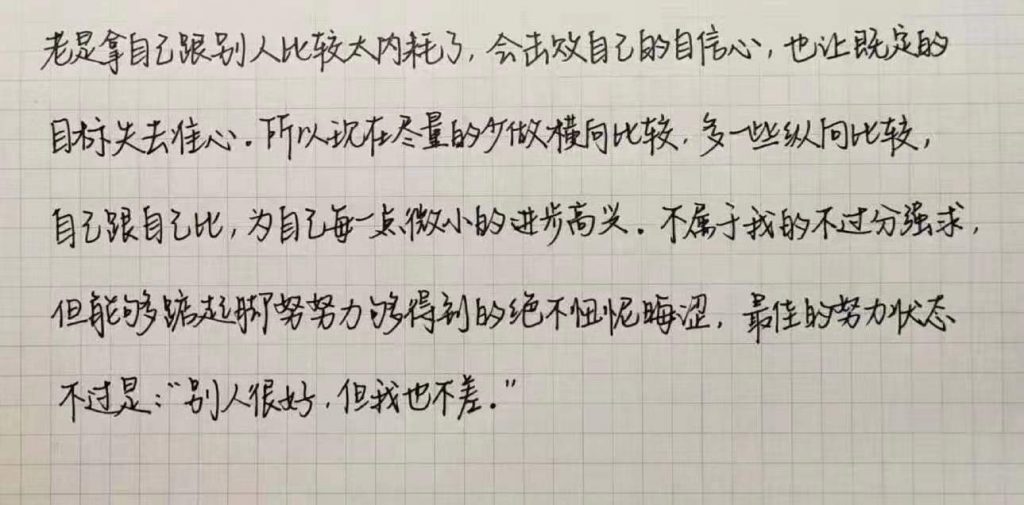 老是拿自己跟别人比较太内耗了，会击败自己的自信心，也让既定的
目标失去准心。所以现在尽量的少做横向比较，多一些纵向比较，
自己跟自己比，为自己每一点微小的进步高兴。不属于我的不过分强求，
但能够踮起脚努努力够得到的绝不忸怩晦涩，最佳的努力状态
不过是：“别人很好，但我也不差。”